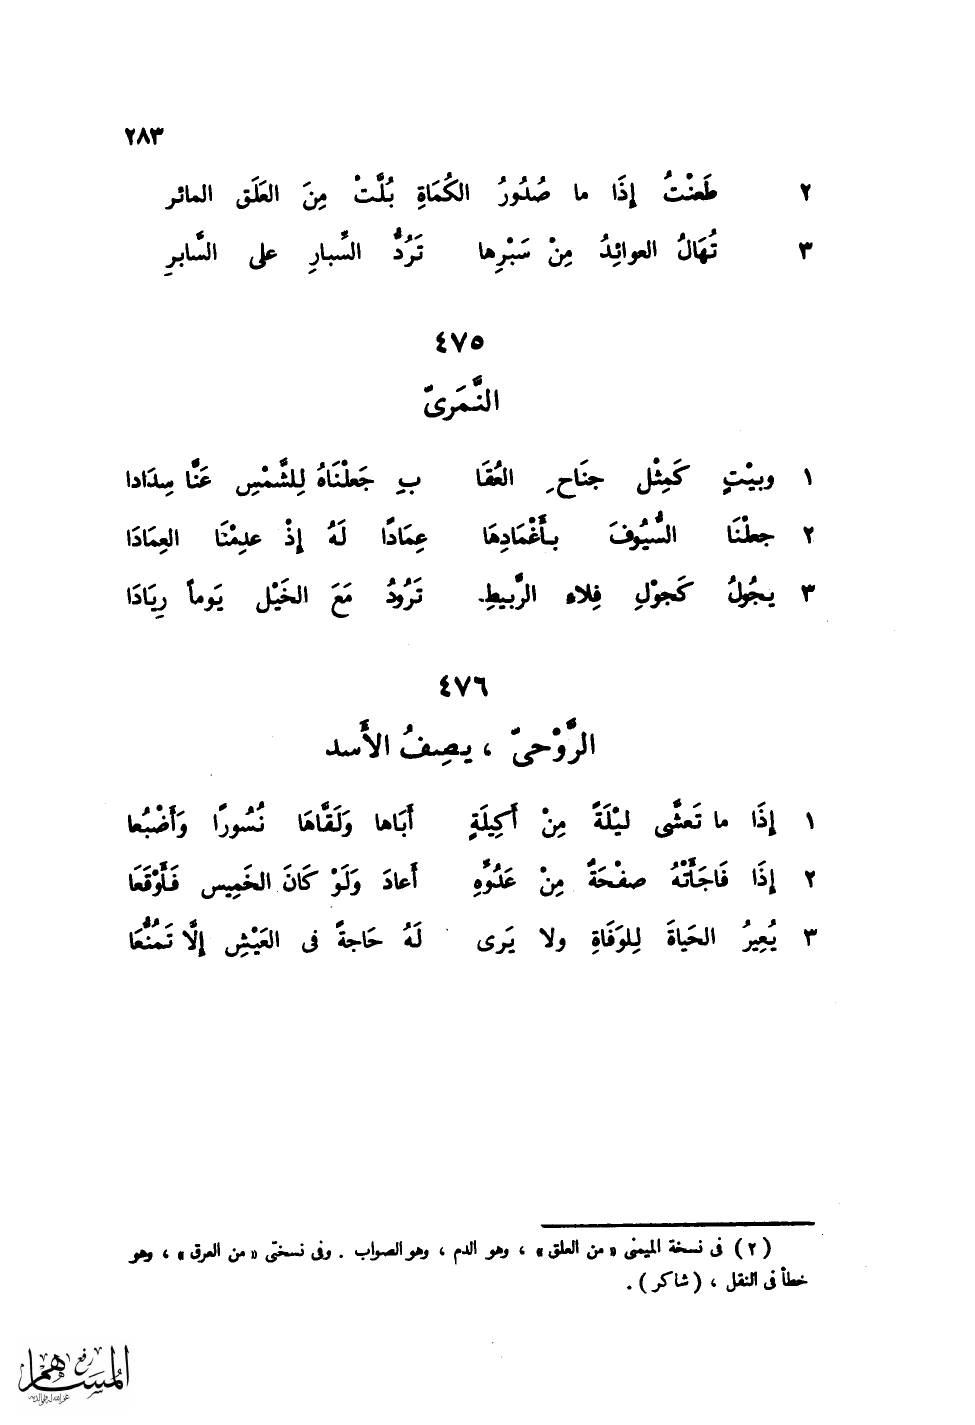 ٢٨٣
٢ طَعَنْتُ إِذَا ما صُدُورُ الكُمَاةِ بُلَّتْ مِنَ العَلَق المائر
٣ تُهَالُ العوائِدُ مِنْ سَبْرِها تَرُدُّ السِّبارِ على السَّابرِ
٤٧٥
النَّمَرىّ
١ وبيْتٍ كَمِثْل جنَاحِ العُقَا بِ جَعَلْنَاهُ لِلشَّمْسِ عَنَّا سِدَادا
٢ جعلْنَا السُّيُوفَ بأَغْمَادِهَا عِمَادًا لَهُ إِذْ عدِمْنَا العِمَادَا
٣ يجُولُ كَجوْلِ فِلاء الرَّبيطِ تَرُودُ مَعَ الخَيْل يَوماً رِيَادَا
٤٧٦
الرَّوْحىّ ، يصِفُ الأَسد
١ إِذَا ما تَعشَّى ليْلَةً مِنْ أَكِيلَةٍ أَبَاها ولَقَّاهَا نُسُورًا وَأَضْبُعا
٢ إِذَا فَاجَأَتْهُ صفْحَةٌ مِنْ عَدُوِّهِ أَعادَ وَلَوْ كَانَ الخَمِيس فَأَوْقَعَا
٣ يُعِيرُ الحَياةَ لِلوَفَاةِ ولا يَرى لَهُ حَاجةً فى العَيْشِ إِلَّا تَمنُّعَا
(٢) فى نسخة الميمنى « من العلق » ، وهو الدم ، وهو الصواب . وفى نسختى « من العرق » ، وهو
خطأ فى النقل ، ( شاكر ) .